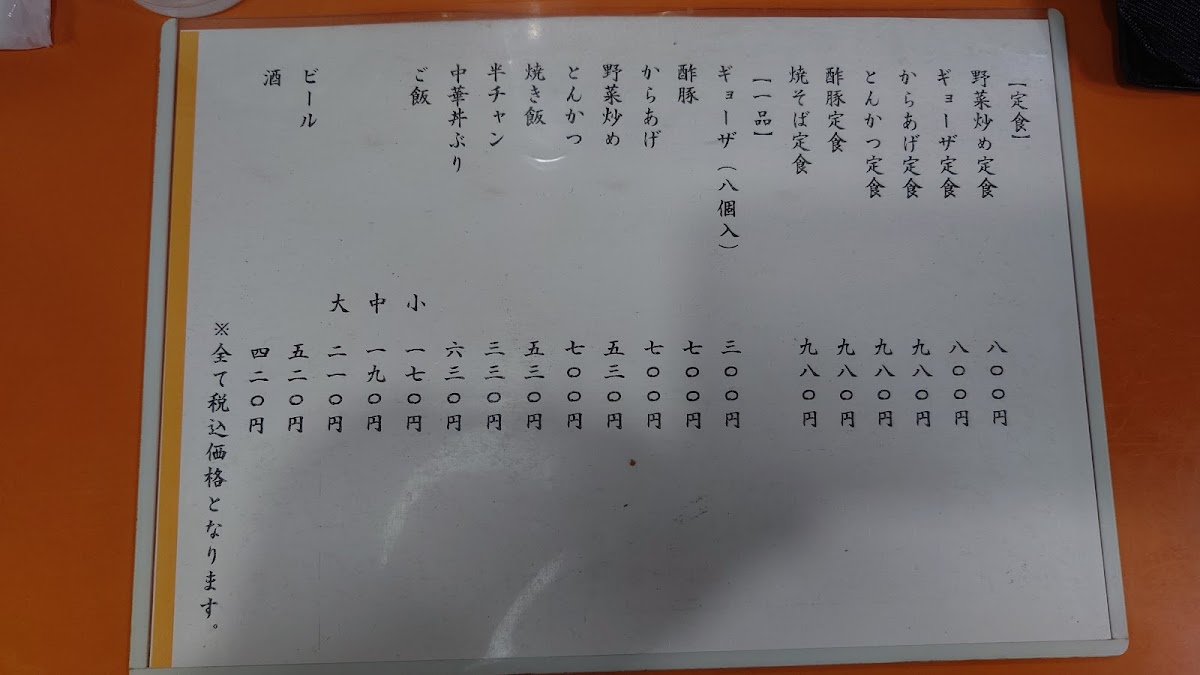 【定食】
野菜炒め定食 八〇〇円
ギョーザ定食 八〇〇円
からあげ定食 九八〇円
とんかつ定食 九八〇円
酢豚定食 九八〇円
焼そば定食 九八〇円
【一品】
ギョーザ（八個入） 三〇〇円
酢豚 七〇〇円
からあげ 七〇〇円
野菜炒め 五三〇円
とんかつ 七〇〇円
焼き飯 五三〇円
半チャン 三三〇円
中華丼ぶり 六三〇円
ご飯 小 一七〇円
中 一九〇円
大 二一〇円
ビール 五二〇円
酒 四二〇円
※全て税込価格となります。